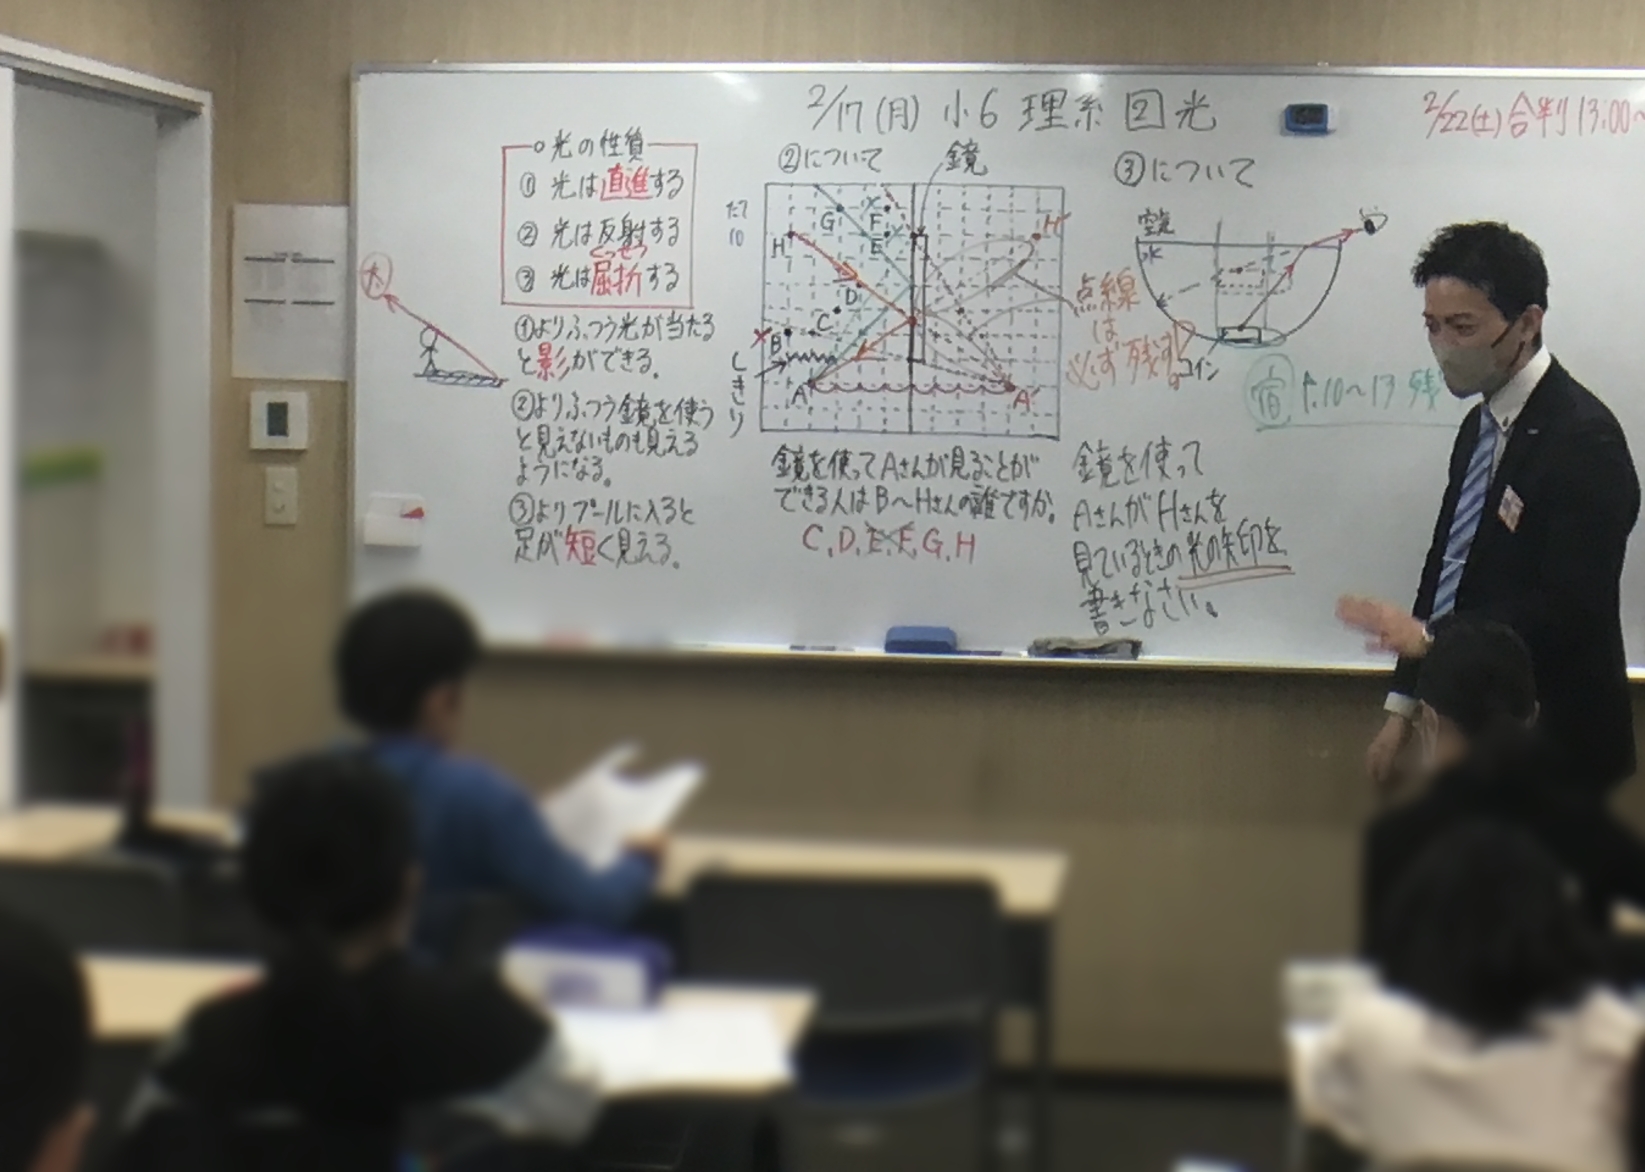 2/17(月) 小6 理系 2 光
2/22(土) 合判 13:00~
光の性質
① 光は直進する
② 光は反射する
くっせつ
③ 光は屈折する
①よりふつう光が当たる
と影ができる。
②よりふつう鏡を使う
と見えないものも見える
ようになる。
③よりプールに入ると
足が短く見える。
太
②について
鏡
たて
10
H
G
F
E
D
C
B
A
H'
A'
しきり
鏡を使ってAさんが見ることが
できる人はB~Hさんの誰ですか。
C, D, E, F, G, H
③について
空気
水
コイン
点線
は
必ず残す。
宿 P.10~13 残
鏡を使って
AさんがHさんを
見ているときの光の矢印を
書きなさい。